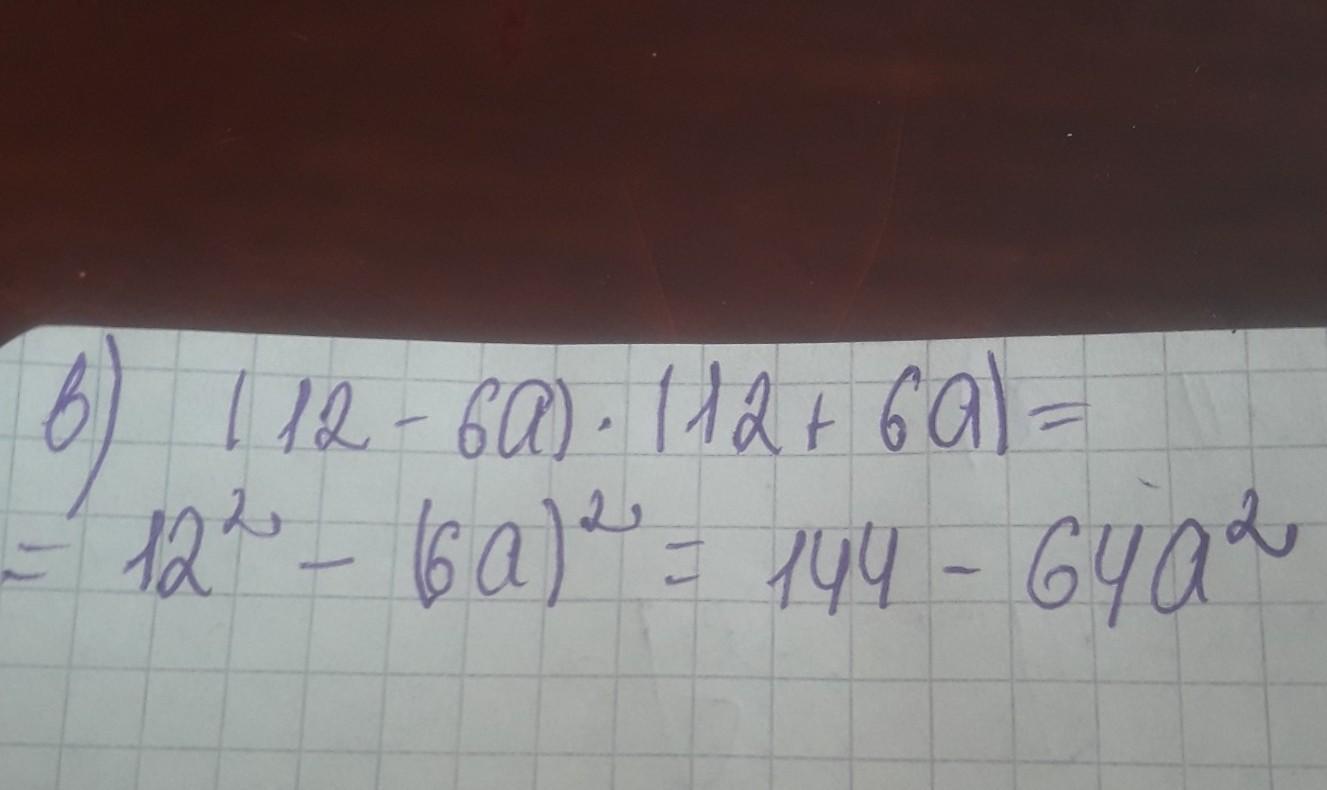 в) (12 - 6а) · (12 + 6а) =
= 12² - (6а)² = 144 - 64а²